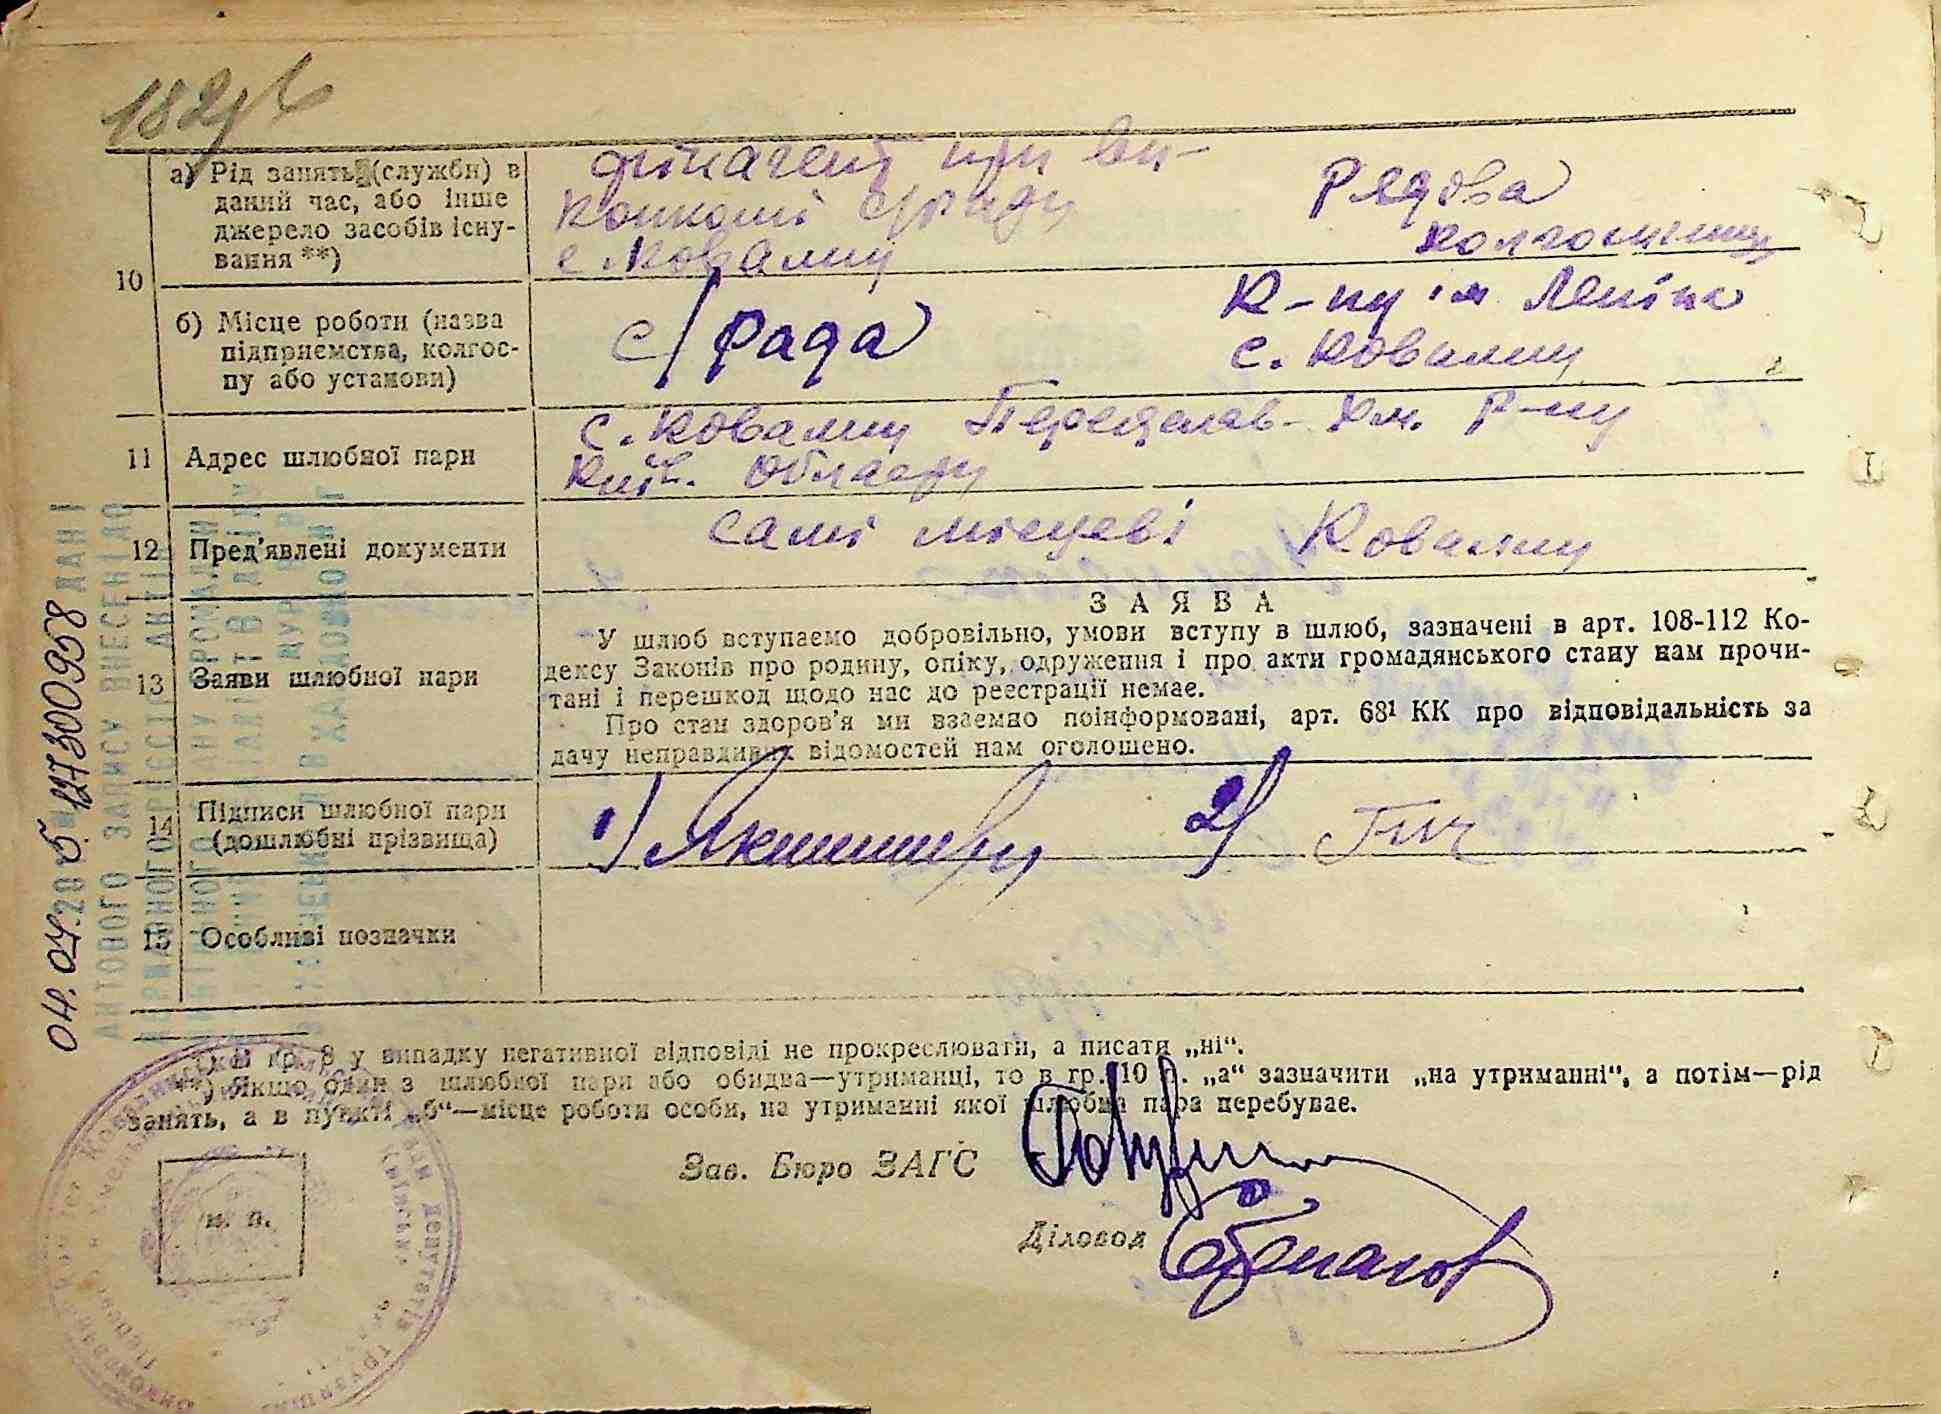 182
10
а) Рід занять (служби) в
даний час, або інше
джерело засобів існу-
вання **)
фінагент при ви-
конкомі с/ради
с Ковалин
Рядова
колгоспниця
б) Місце роботи (назва
підприємства, колгос-
пу або установи)
с/рада
К-пу ім Леніна
с. Ковалин
11 Адрес шлюбної пари
с. Ковалин Переяслав-Хм. Р-ну
Київ. Області
12 Пред'явлені документи
самі місцеві Ковалин
13 Заяви шлюбної пари
ЗАЯВА
У шлюб вступаємо добровільно, умови вступу в шлюб, зазначені в арт. 108-112 Ко-
дексу Законів про родину, опіку, одруження і про акти громадянського стану нам прочи-
тані і перешкод щодо нас до реєстрації немає.
Про стан здоров'я ми взаємно поінформовані, арт. 68¹ КК про відповідальність за
дачу неправдивих відомостей нам оголошено.
14 Підписи шлюбної пари
(дошлюбні прізвища)
1) 2)
15 Особливі позначки
*) В гр. 8 у випадку негативної відповіді не прокреслювати, а писати „ні“.
**) Якщо один з шлюбної пари або обидва—утриманці, то в гр. 10 п. „а“ зазначити „на утриманні“, а потім—рід
занять, а в пункті „б“—місце роботи особи, на утриманні якої шлюбна пара перебуває.
Зав. Бюро ЗАГС
Діловод
м. п.